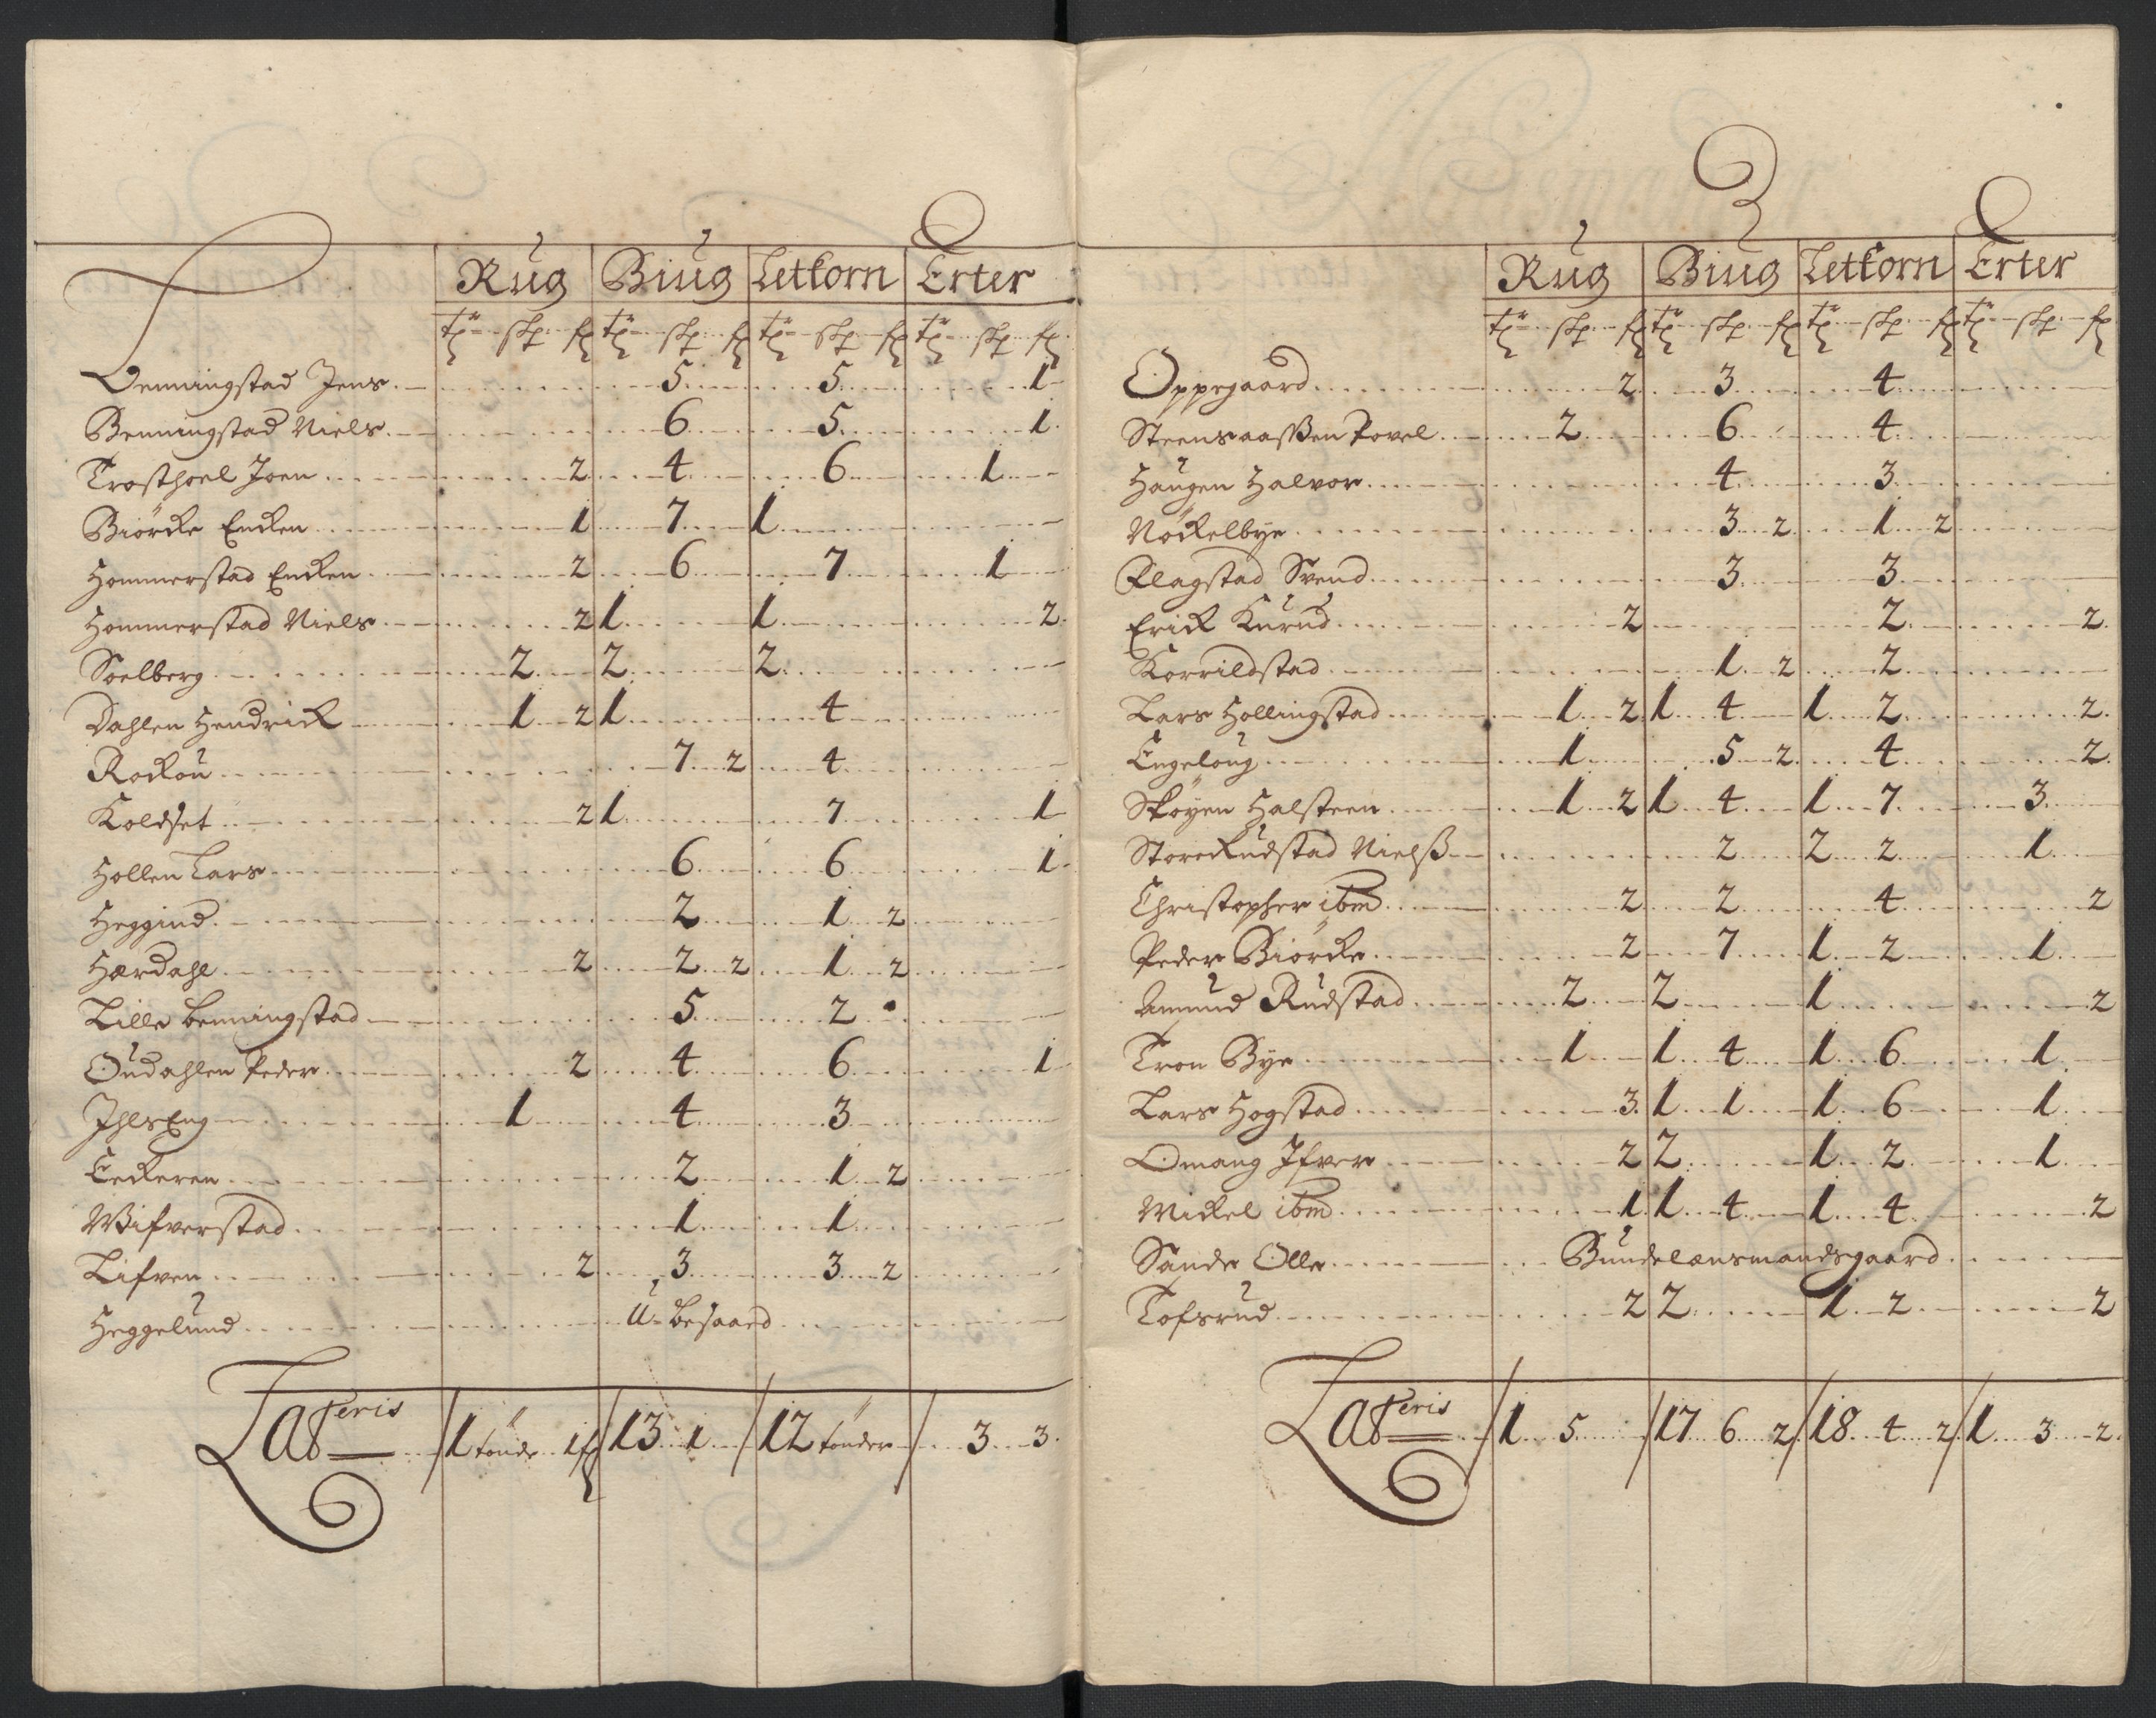 Rug Biug Letkorn Erter
tr skp fr tr skp fr tr skp fr tr skp fr
Benningstad Jens 5 5 1
Benningstad Niels 6 5 1
Trosthoel Joen 2 4 6 1
Biörcke Encken 1 7 1
Hommerstad Encken 2 6 7 1
Hommerstad Niels 2 1 1 2
Soelberg 2 2 2
Dahlen Hendrick 1 2 1 4
Rockou 7 2 4
Koldset 2 1 7 1
Hollen Lars 6 6 1
Heggind 2 1 2
Hærdahl 2 2 2 1 2
Lille benningstad 5 2
Oudahlen Peder 2 4 6 1
Ihls Eng 1 4 3
Eckeren 2 1 2
Wifverstad 1 1
Lifven 2 3 3 2
Heggelund U-besaaed
Lateris 1 tönde 1 fr 13 1 12 tönder 3 3
3
Rug Biug Letkorn Erter
tr skp fr tr skp fr tr skp fr tr skp fr
Oppegaard 2 3 4
Steensaassen Povel 2 6 4
Haugen Halvor 4 3
Nöckelbye 3 2 1 2
Flagstad Svend 3 3
Erick Kurud 2 2 2
Korrildstad 1 2 2
Lars Hollingstad 1 2 1 4 1 2 2
Engeloug 1 5 2 4 2
Sköyen Halsteen 1 2 1 4 1 7 3
Store Rudstad Nielß 2 2 2 1
Christopher ibm 2 2 4 2
Peder Biörcke 2 7 1 2 1
Amund Rudstad 2 2 1 2
Tron Bye 1 1 4 1 6 1
Lars Hogstad 3 1 1 1 6 1
Omang Ifver 2 2 1 2 1
Mickel ibm 1 1 4 1 4 2
Sande Olle Bundelænsmandsgaard
Tofsrud 2 2 1 2 2
Lateris 1 5 17 6 2 18 4 2 1 3 2